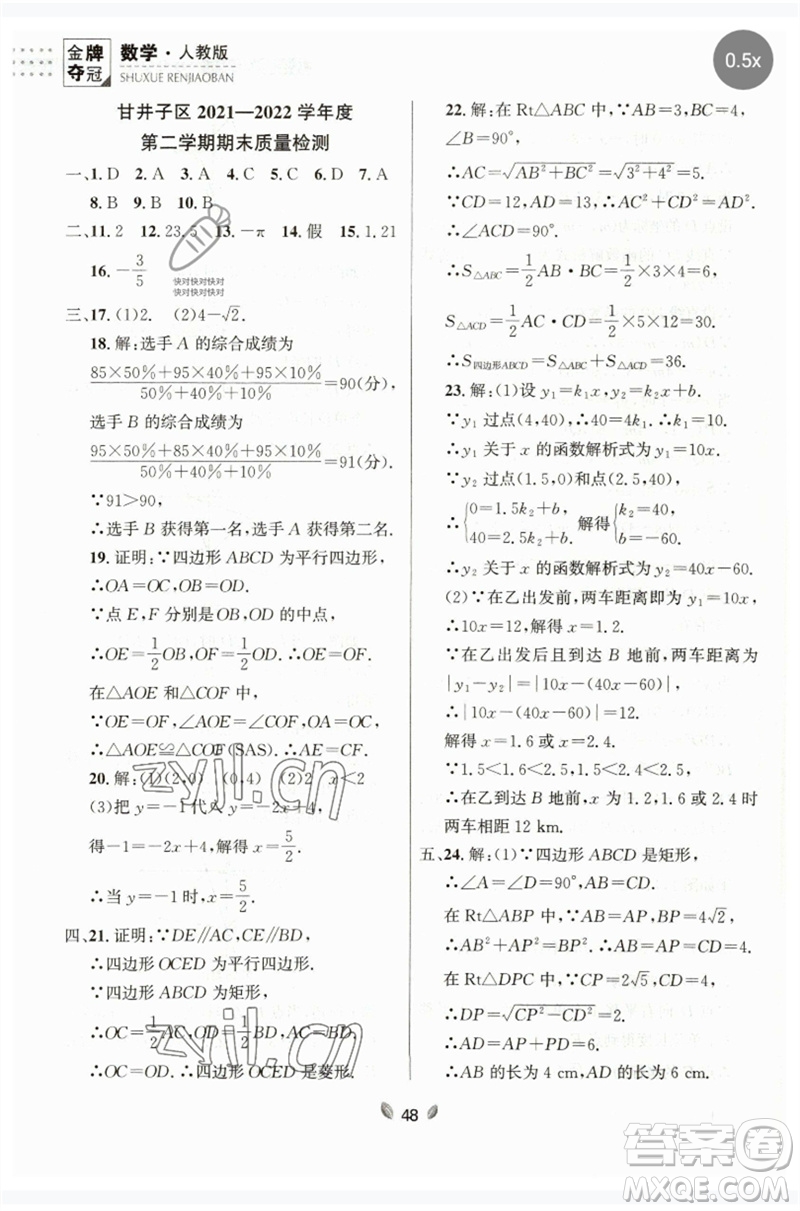 金牌夺冠
数学·人教版
SHUXUE RENJIAOBAN
0.5x
甘井子区 2021—2022 学年度
第二学期期末质量检测
一、1. D 2. A 3. A 4. C 5. C 6. D 7. A
8. B 9. B 10. B
二、11. 2 12. 23.5 13. -π 14. 假 15. 1.21
16. -3/5
快对快对快对
快对快对快对
三、17. (1)2. (2)4-√2.
18. 解：选手 A 的综合成绩为
(85×50%+95×40%+95×10%)/(50%+40%+10%)=90(分),
选手 B 的综合成绩为
(95×50%+85×40%+95×10%)/(50%+40%+10%)=91(分).
∵91>90,
∴选手 B 获得第一名,选手 A 获得第二名.
19. 证明：∵四边形 ABCD 为平行四边形,
∴OA=OC,OB=OD.
∵点 E,F 分别是 OB,OD 的中点,
∴OE=1/2OB,OF=1/2OD.∴OE=OF.
在△AOE 和△COF 中,
∵OA=OC,∠AOE=∠COF,OE=OF,
∴△AOE≌△COF(SAS).∴AE=CF.
20. 解：(1)(2,0) (0,4) (2)x<2
(3)把 y=-1 代入 y=-2x+4,
得-1=-2x+4,解得 x=5/2.
∴当 y=-1 时,x=5/2.
四、21. 证明：∵DE∥AC,CE∥BD,
∴四边形 OCED 为平行四边形.
∵四边形 ABCD 为矩形,
∴OC=1/2AC,OD=1/2BD,AC=BD.
∴OC=OD.∴四边形 OCED 是菱形.
22. 解：在 Rt△ABC 中,∵AB=3,BC=4,
∠B=90°,
∴AC=√(AB²+BC²)=√(3²+4²)=5.
∵CD=12,AD=13,∴AC²+CD²=AD².
∴∠ACD=90°.
∴S△ABC=1/2AB·BC=1/2×3×4=6,
S△ACD=1/2AC·CD=1/2×5×12=30.
∴S四边形ABCD=S△ABC+S△ACD=36.
23. 解：(1)设 y₁=k₁x,y₂=k₂x+b.
∵y₁ 过点(4,40),∴40=4k₁.∴k₁=10.
∴y₁ 关于 x 的函数解析式为 y₁=10x.
∵y₂ 过点(1.5,0)和点(2.5,40),
∴{0=1.5k₂+b, 40=2.5k₂+b. 解得{k₂=40, b=-60.
∴y₂ 关于 x 的函数解析式为 y₂=40x-60.
(2)∵在乙出发前,两车距离即为 y₁=10x,
∴10x=12,解得 x=1.2.
∵在乙出发后且到达 B 地前,两车距离为
|y₁-y₂|=|10x-(40x-60)|,
∴|10x-(40x-60)|=12.
解得 x=1.6或 x=2.4.
∵1.5<1.6<2.5,1.5<2.4<2.5,
∴在乙到达 B 地前,x 为 1.2,1.6 或 2.4 时
两车相距 12 km.
五、24. 解：(1)∵四边形 ABCD 是矩形,
∴∠A=∠D=90°,AB=CD.
在 Rt△ABP 中,∵AB=AP,BP=4√2,
∴AB²+AP²=BP².∴AB=AP=4.
在 Rt△DPC 中,∵CP=2√5,CD=4,
∴DP=√(CP²-CD²)=2.
∴AD=AP+PD=6.
∴AB 的长为 4 cm,AD 的长为 6 cm.
48
zyjl.cn
zyjl.cn
答案卷
MXQE.COM